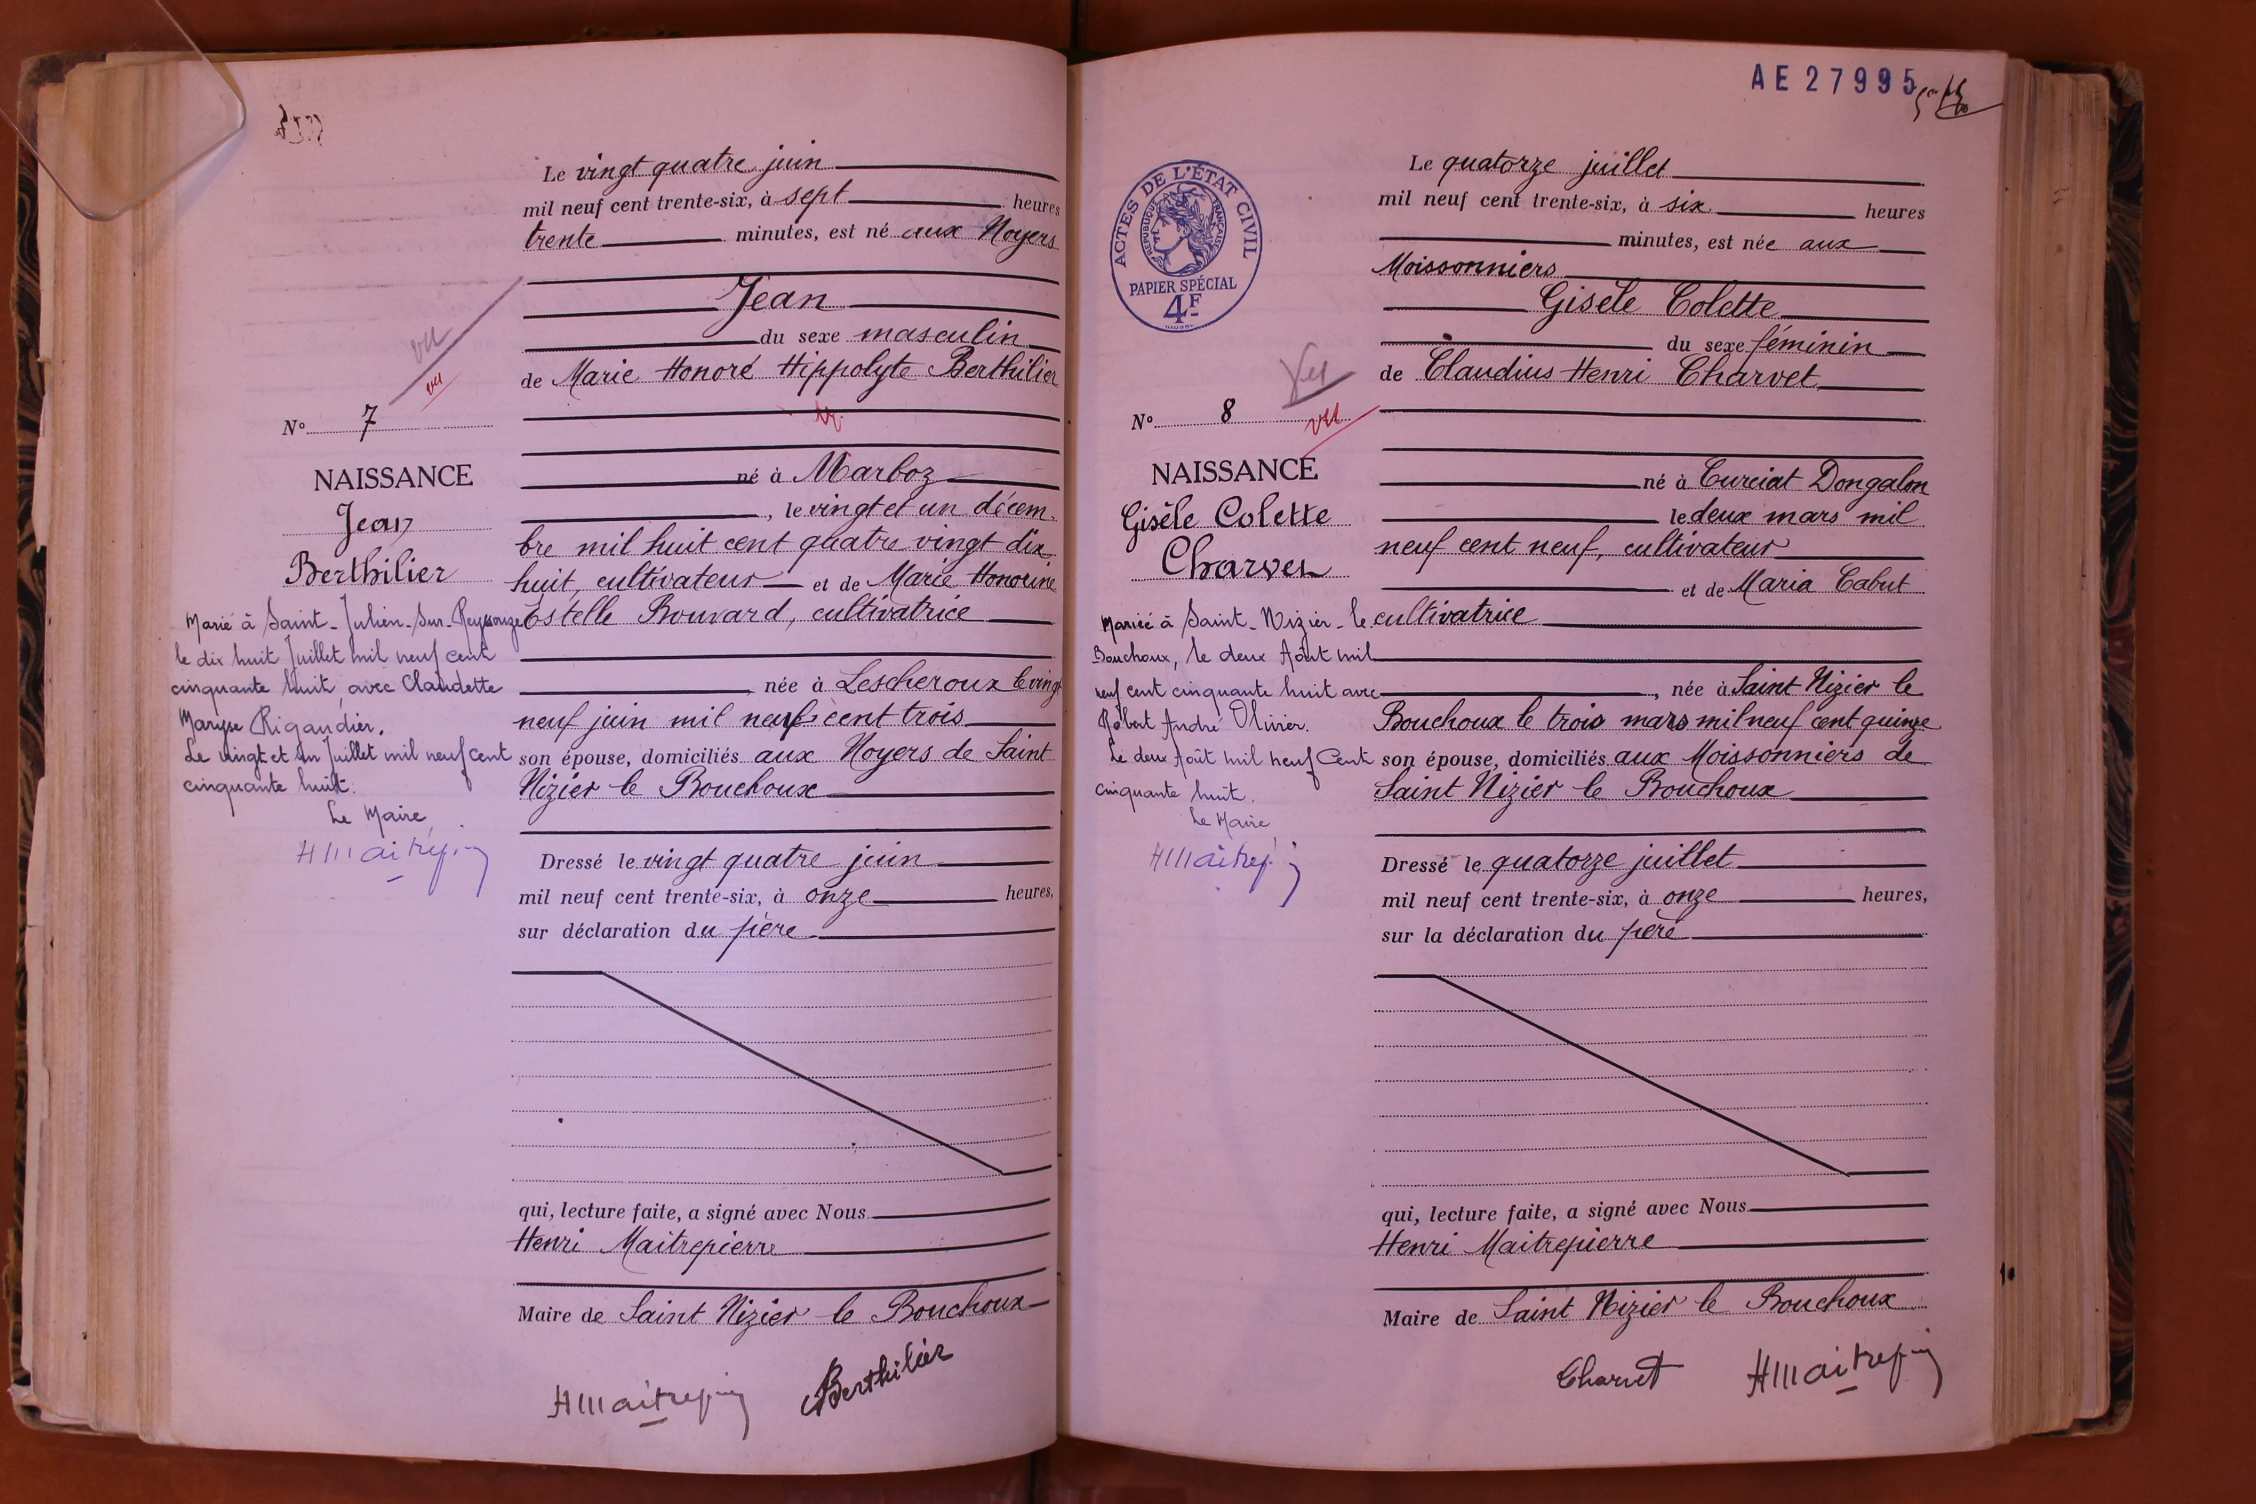 Le vingt quatre juin
mil neuf cent trente-six, à sept heures
trente minutes, est né aux Noyers
Jean
du sexe masculin
de Marie Honoré Hippolyte Berthilier
né à Marboz
, le vingt et un décem-
bre mil huit cent quatre vingt dix
huit, cultivateur et de Marie Honorine
Estelle Bouvard, cultivatrice
, née à Lescheroux le vingt
neuf juin mil neuf cent trois
son épouse, domiciliés aux Noyers de Saint
Nizier le Bouchoux
Dressé le vingt quatre juin
mil neuf cent trente-six, à onze heures,
sur déclaration du père
qui, lecture faite, a signé avec Nous
Henri Maitrepierre
Maire de Saint Nizier le Bouchoux
HMaitrepierre Berthilier
vu
vu
N° 7
NAISSANCE
Jean
Berthilier
Marié à Saint-Julien-sur-Reyssouze
le dix huit Juillet mil neuf cent
cinquante huit avec Claudette
Maryse Rigaudier.
Le vingt et un Juillet mil neuf cent
cinquante huit.
Le Maire
HMaitrepierre
AE 27995
ACTES DE L'ÉTAT CIVIL
RÉPUBLIQUE FRANÇAISE
PAPIER SPÉCIAL
4F
Le quatorze juillet
mil neuf cent trente-six, à six heures
minutes, est née aux
Moissonniers
Gisèle Colette
du sexe féminin
de Claudius Henri Charvet
né à Curciat Dongalon
le deux mars mil
neuf cent neuf, cultivateur
et de Maria Cabut
cultivatrice
, née à Saint Nizier le
Bouchoux le trois mars mil neuf cent quinze
son épouse, domiciliés aux Moissonniers de
Saint Nizier le Bouchoux
Dressé le quatorze juillet
mil neuf cent trente-six, à onze heures,
sur la déclaration du père
qui, lecture faite, a signé avec Nous
Henri Maitrepierre
Maire de Saint Nizier le Bouchoux
Charvet HMaitrepierre
Vu
vu
N° 8
NAISSANCE
Gisèle Colette
Charvet
Mariée à Saint-Nizier-le
Bouchoux, le deux Août mil
neuf cent cinquante huit avec
Robert André Olivier.
Le deux Août mil neuf Cent
cinquante huit.
Le Maire
HMaitrepierre